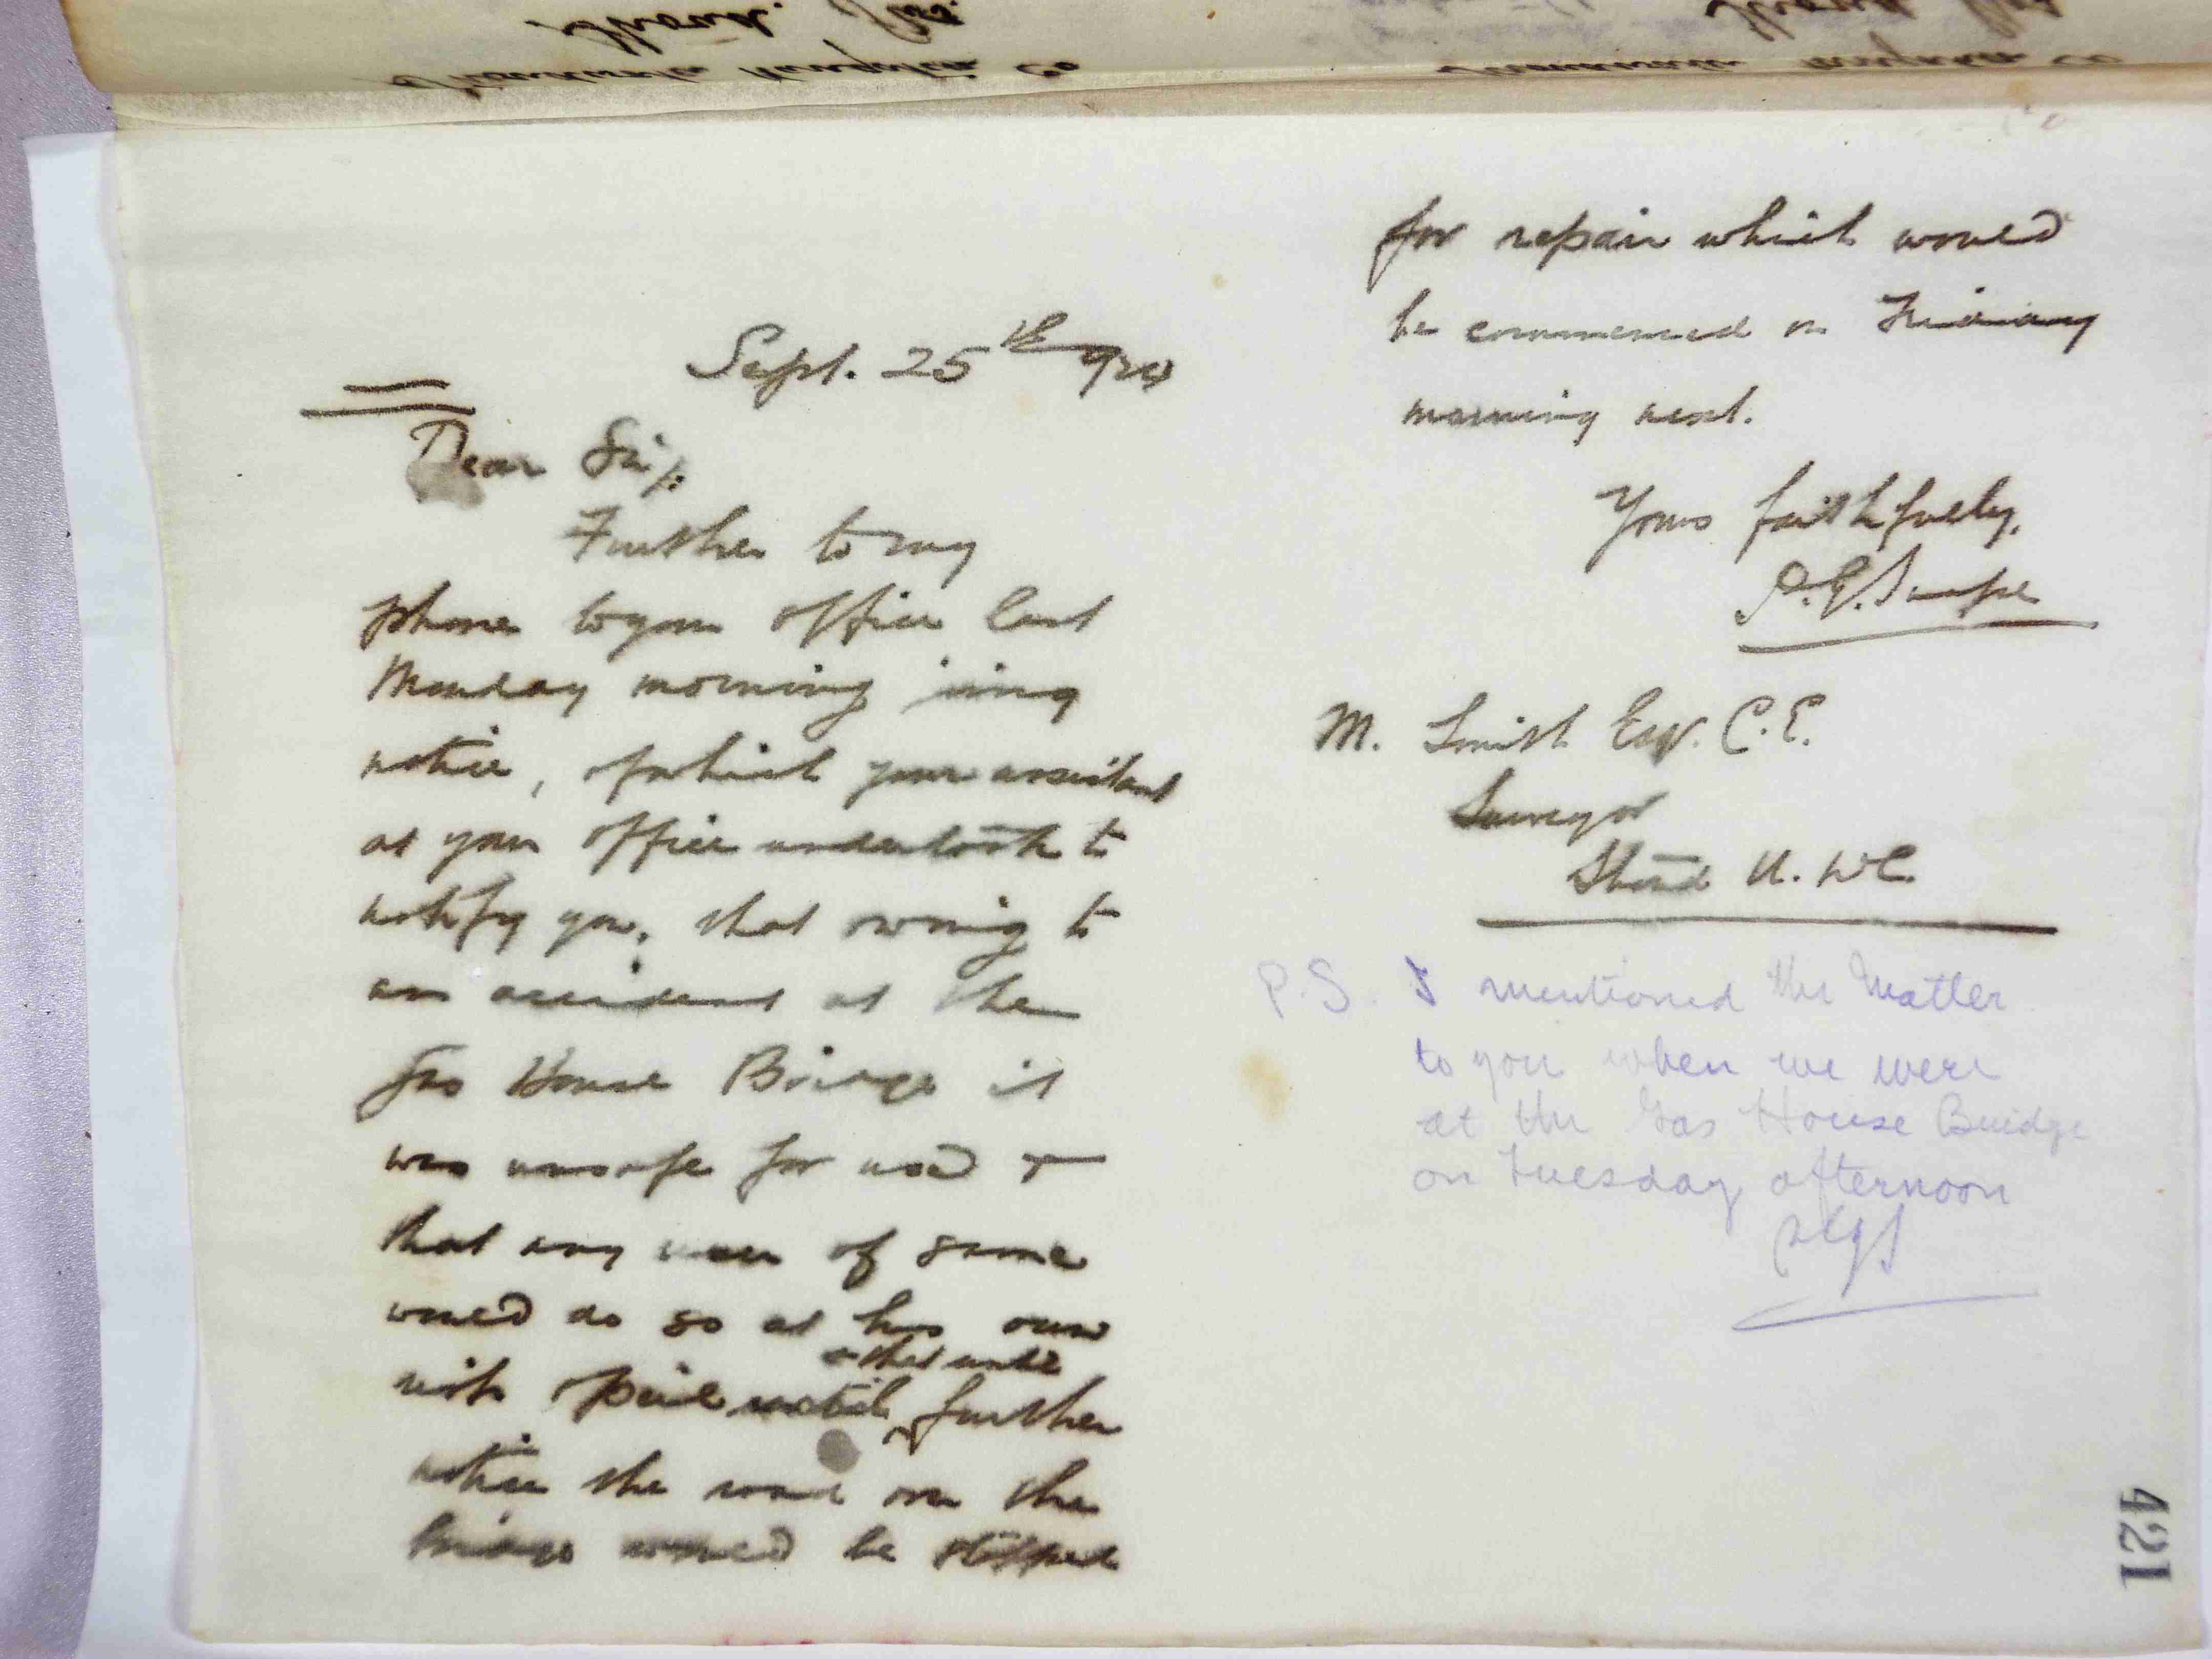 Sept. 25th 1924
Dear Sir,
Further to my
phone to your office last
Monday morning
notice, of which your assistant
at your office undertook to
notify you, that owing to
an accident at the
Gas House Bridge it
was unsafe for used &
that any user of same
would do so at his own
risk & peril until further
& that until
notice the road over the
bridge would be stopped
for repair which would
be commenced on Friday
morning next.
Yours faithfully,
M. Smith Esqr. C.E.
Surveyor
Stroud U.
P.S. I mentioned the matter
to you when we were
at the Gas House Bridge
on Tuesday afternoon
421